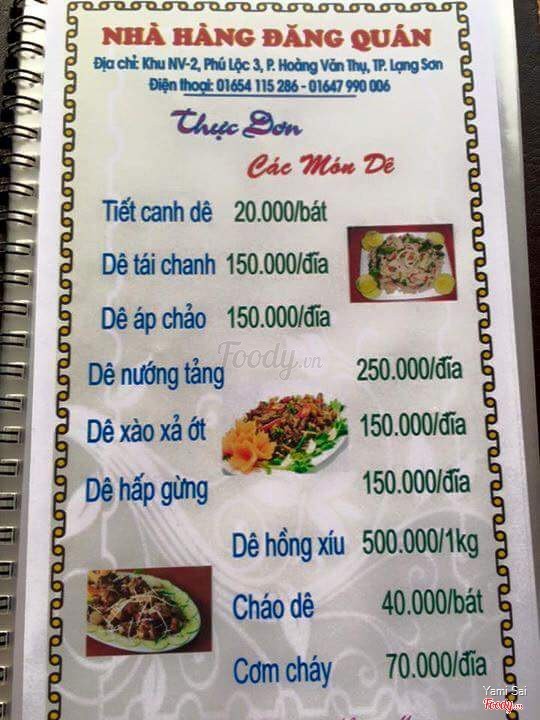 NHÀ HÀNG ĐĂNG QUÁN
Địa chỉ: Khu NV-2, Phú Lộc 3, P. Hoàng Văn Thụ, TP. Lạng Sơn
Điện thoại: 01654 115 286 - 01647 990 006
Thực Đơn
Các Món Dê
Tiết canh dê 20.000/bát
Dê tái chanh 150.000/đĩa
Dê áp chảo 150.000/đĩa
Foody.vn
Dê nướng tảng 250.000/đĩa
Dê xào xả ớt 150.000/đĩa
Dê hấp gừng 150.000/đĩa
Dê hồng xíu 500.000/1kg
Cháo dê 40.000/bát
Cơm cháy 70.000/đĩa
Yami Sai
Foody.vn